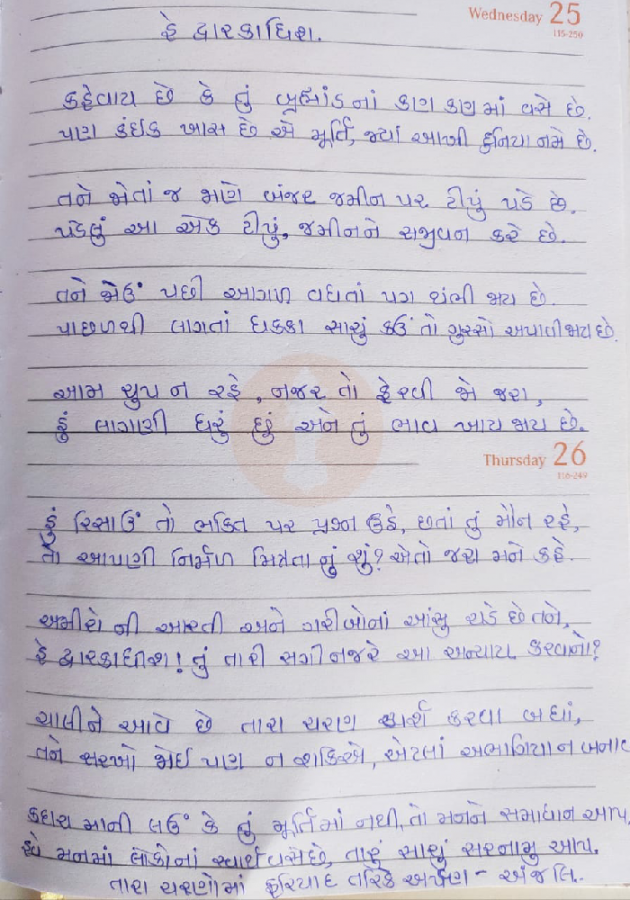 Wednesday 25
115-250
હે દ્વારકાધિશ.
કહેવાય છે કે તું બ્રહ્માંડનાં કણ કણમાં વસે છે.
પણ કંઈક ખાસ છે એ મૂર્તિ, જ્યાં આખી દુનિયા નમે છે.
તને જોતાં જ જાણે બંજર જમીન પર ટીપું પડે છે.
પડેલું આ એક ટીપું, જમીનને સજીવન કરે છે.
તને જોઉં પછી આગળ વધતાં પગ થંભી જાય છે.
પાછળથી લાગતાં ધક્કા સાચું કઉં તો ગુસ્સો અપાવી જાય છે.
આમ ચુપ ન રહે, નજર તો ફેરવી જો જરા,
હું લાગણી ધરું છું અને તું ભાવ ખાય જાય છે.
Thursday 26
116-249
હું રિસાઉં તો ભક્તિ પર પ્રશ્ન ઉઠે, છતાં તું મૌન રહે,
તો આપણી નિર્મળ મિત્રતાનું શું? એતો જરા મને કહે.
અમીરો ની આરતી અને ગરીબોનાં આંસુ ચડે છે તને,
હે દ્વારકાધીશ! તું તારી સગી નજરે આ અન્યાય કરવાનો?
ચાલીને આવે છે તારા ચરણ સ્પર્શ કરવા બધાં,
તને સરખો જોઈ પણ ન શકિએ, એટલાં અભાગિયા ન બનાવ
કદાચ માની લઉં કે તું મૂર્તિમાં નથી, તો મનને સમાધાન આપ,
હવે મનમાં લોકોનાં સ્વાર્થ વસે છે, તારું સાચું સરનામુ આપ.
તારા ચરણોમાં ફરિયાદ તરિકે અર્પણ - અંજલિ.